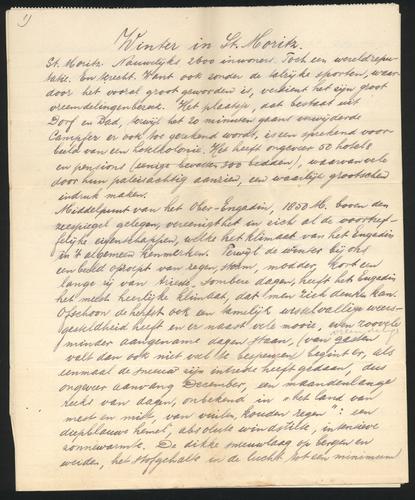 1)
Winter in St. Moritz.
St. Moritz. Nauwelijks 2600 inwoners. Toch een wereldrepu-
tatie. En terecht. Want ook zonder de talrijke sporten, waar-
door het vooral groot geworden is, verdient het zijn groot
vreemdelingenbezoek. Het plaatsje, dat bestaat uit
Dorf en Bad, terwijl het 20 minuten gaans verwijderde
Campfer er ook toe gerekend wordt, is een sprekend voor-
beeld van een hotelkolonie. Het heeft ongeveer 50 hotels
en pensions (eenige bevatten 300 bedden), waarvan vele
door hun paleisachtig aanzien, een waarlijk grootschen
indruk maken.
Middelpunt van het Ober-Engadin, 1850 M. boven den
zeespiegel gelegen, vereenigt het in zich al de voortref-
felijke eigenschappen, welke het klimaat van het Engadin
in 't algemeen kenmerken. Terwijl de winter bij ons
een beeld oproept van regen, storm, modder, kort een
lange rij van triest-sombere dagen, heeft het Engadin
het meest heerlijke klimaat, dat men zich denken kan.
Ofschoon de herfst ook een tamelijk wisselvallige weers-
gesteldheid heeft en er naast vele mooie, even zoovele
minder aangename dagen staan, (van gasten
valt dan ook niet veel te bespeuren) begint er, als
eenmaal de sneeuw zijn intrede heeft gedaan, dus
ongeveer aanvang December, een maandenlange
reeks van dagen, onbekend in "het land van
mest en mist, van vuilen, kouden regen": een
diepblauwe hemel, absolute windstilte, intensieve
zonnewarmte. De dikke sneeuwlaag op bergen en
weiden, het stofgehalte en de lucht tot een minimum